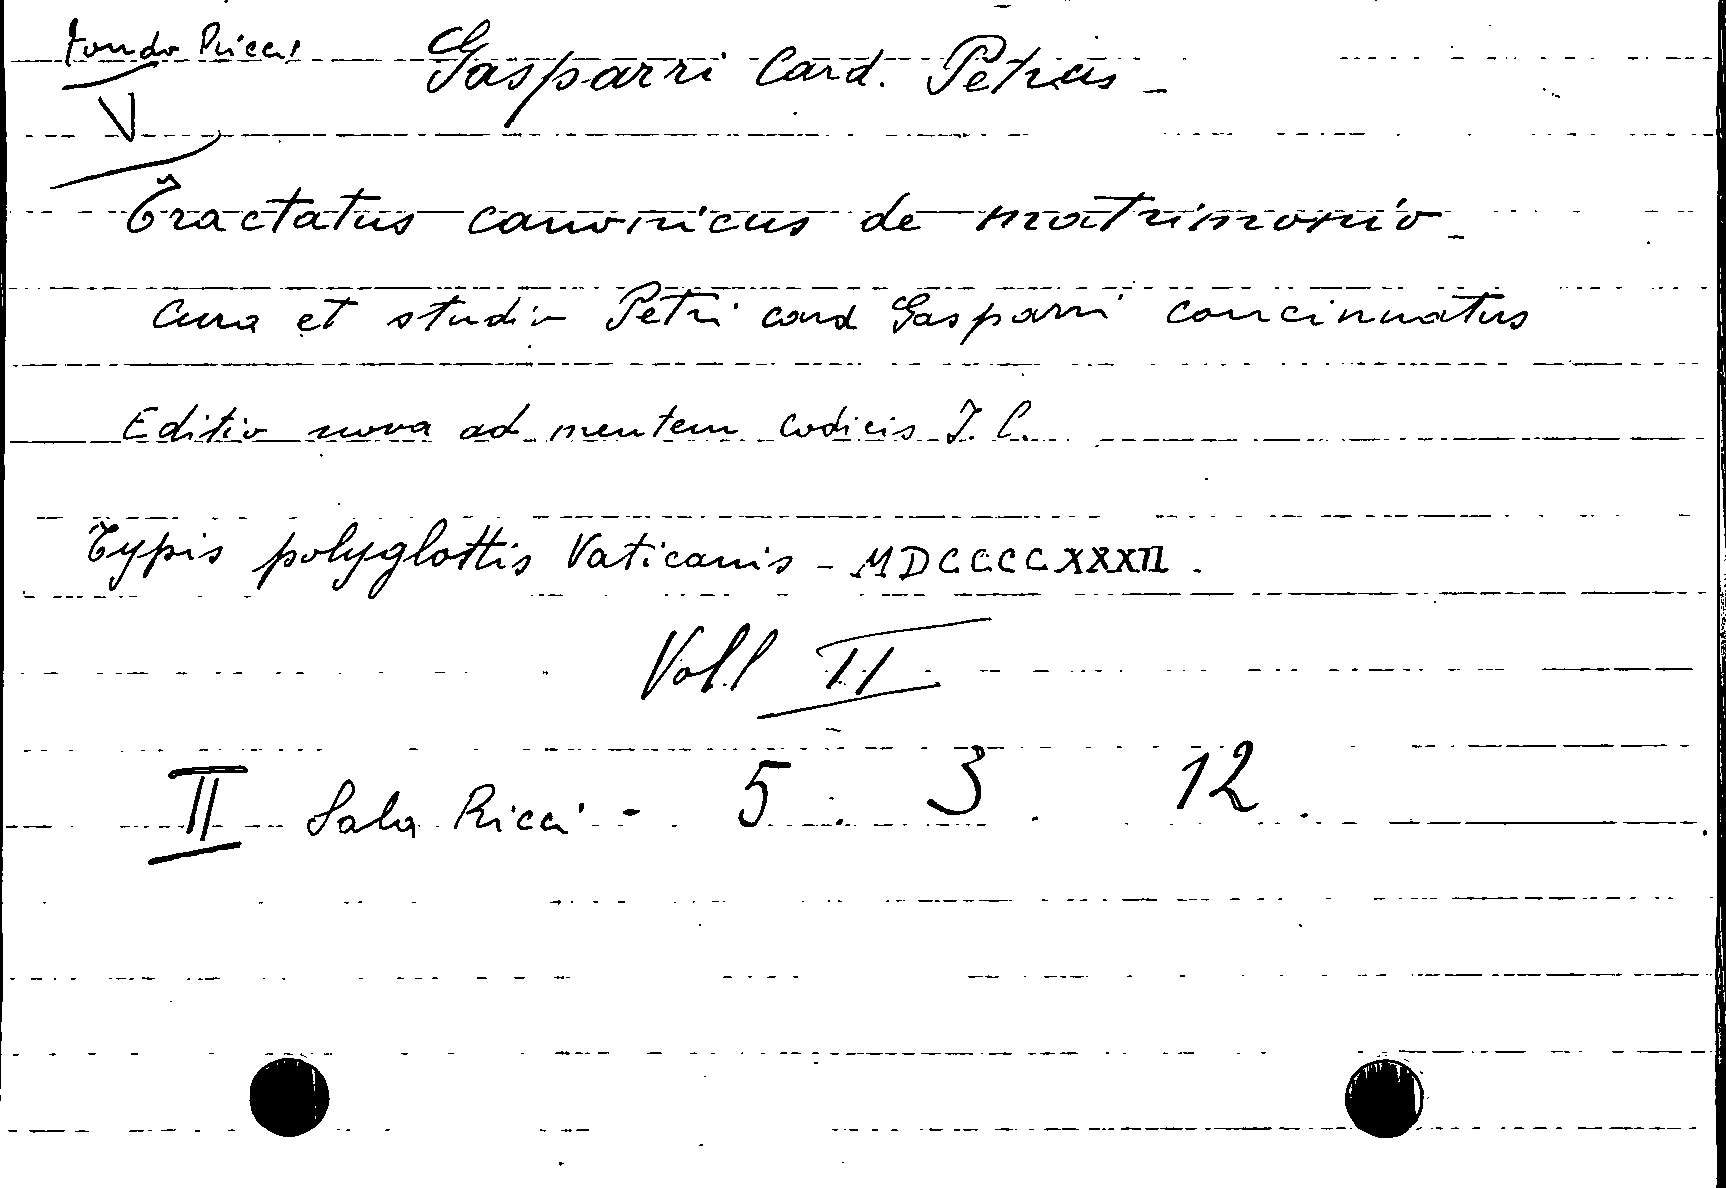 Fondo Ricci
V
Gasparri Card. Petrus -
Tractatus canonicus de matrimonio -
cura et studio Petri card Gasparri concinnatus
Editio nova ad mentem codicis J. C.
Typis polyglottis Vaticanis - MDCCCCXXXII.
Voll II
II Sala Ricci - 5 . 3 . 12 .